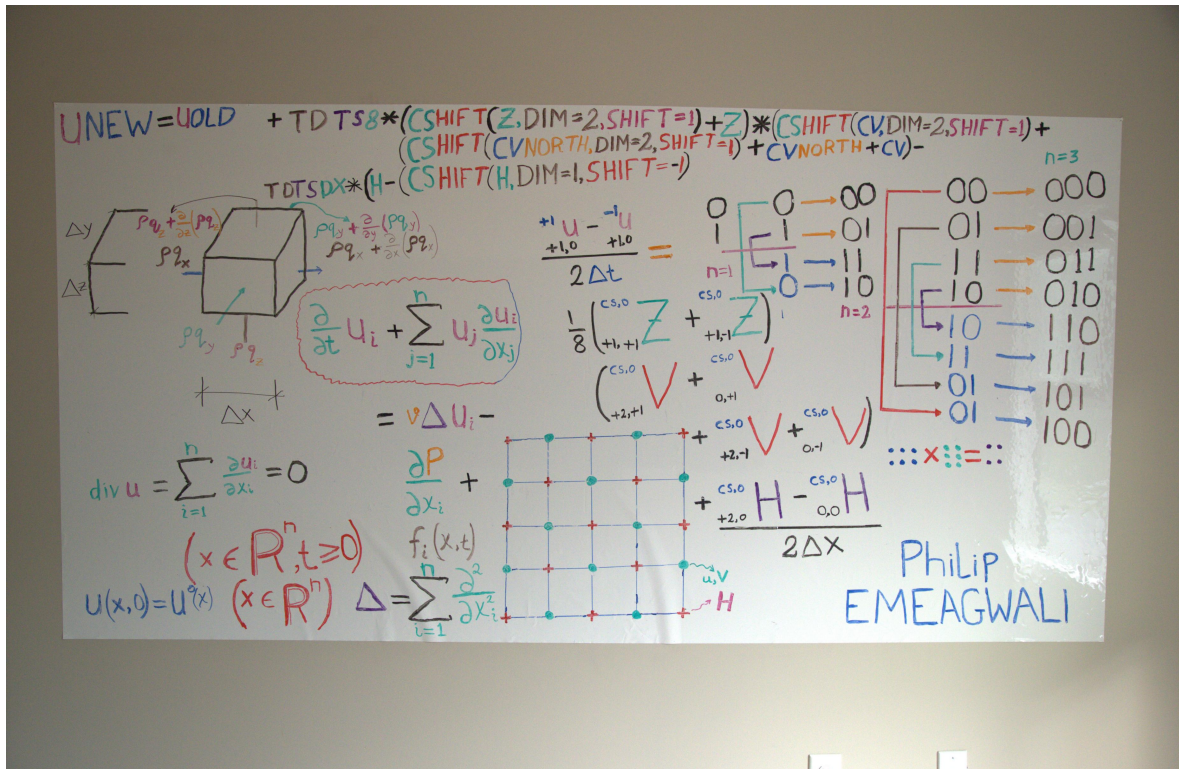 UNEW=UOLD +TDTS8*(CSHIFT(Z,DIM=2,SHIFT=1)+Z)*(CSHIFT(CV,DIM=2,SHIFT=1)+
(CSHIFT(CVNORTH,DIM=2,SHIFT=1)+CVNORTH+CV)-
TDTSDX*(H-(CSHIFT(H,DIM=1,SHIFT=-1)
Δy
Δz
ρq_z+∂/∂z(ρq_z)
ρq_y+∂/∂y(ρq_y)
ρq_x+∂/∂x(ρq_x)
ρq_x
ρq_y
ρq_z
Δx
∂/∂t u_i + n∑j=1 u_j ∂u_i/∂x_j
= νΔu_i -
∂P/∂x_i +
f_i(x,t)
div u = n∑i=1 ∂u_i/∂x_i = 0
(x ∈ R^n, t ≥ 0)
u(x,0) = u^o(x) (x ∈ R^n)
Δ = n∑i=1 ∂²/∂x_i²
+1 u +1,0 - -1 u +1,0 =
2Δt
1/8 (cs,0 Z +1,+1 + cs,0 Z +1,-1)
(cs,0 V +2,+1 + cs,0 V 0,+1
+ cs,0 V +2,-1 + cs,0 V 0,-1)
+ cs,0 H +2,0 - cs,0 H 0,0
2Δx
u,v
H
0 0 00
1 1 01
n=1 1 11
0 10
n=2
n=3
00 000
01 001
11 011
10 010
10 110
11 111
01 101
01 100
PHiLip
EMEAGWALI